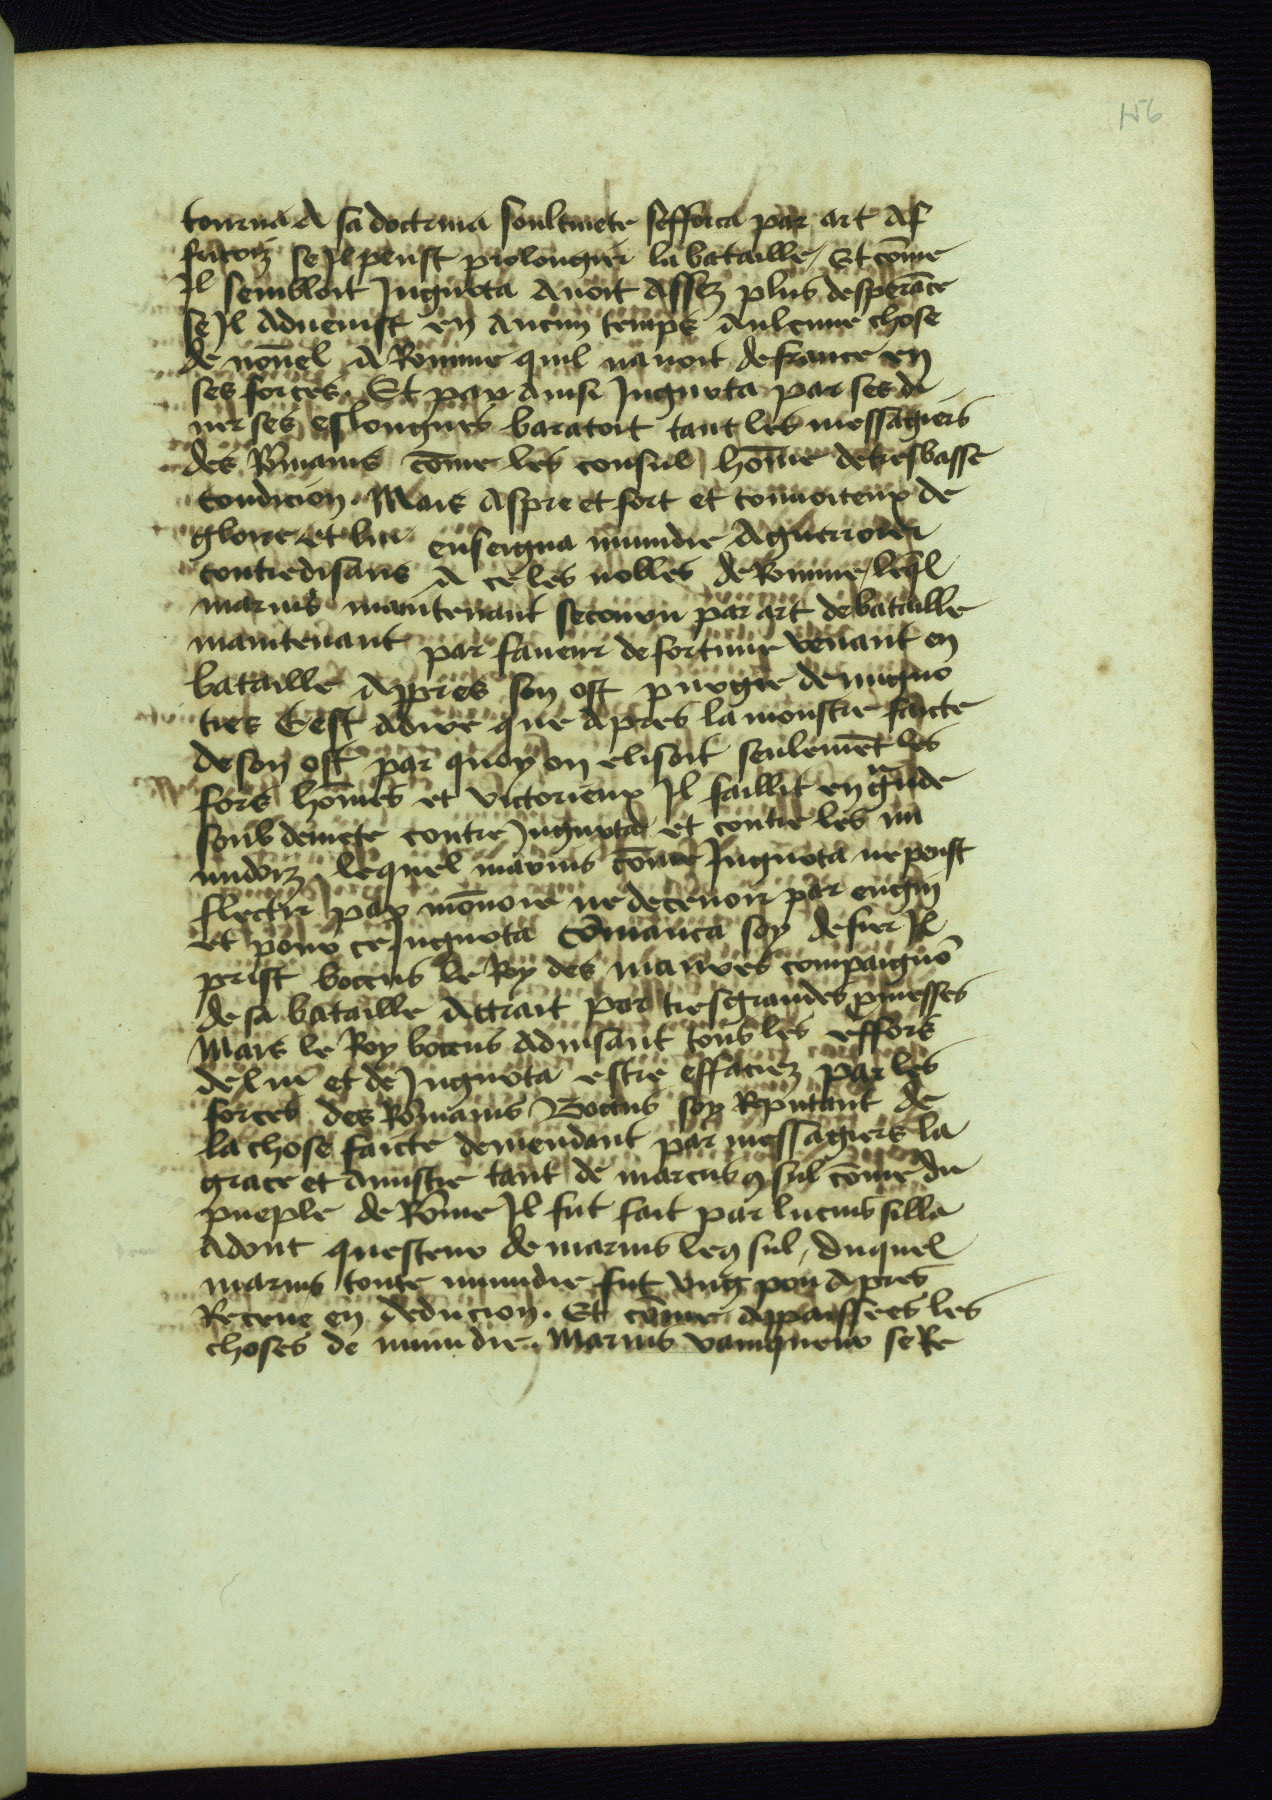 156
tourna a sa doctrina soultivete sefforca par art af
fricoiz se il peust prolongier la bataille / Et cōme
Il sembloit Jugurta avoit assez plus desperāce
se Il aduenist en aucun temps aulcune chose
de nouel a Romme quil navoit de france en
ses forces. Et par ainsi Jugurta par ses di
uerses eslongnes baratoit tant les messagiers
des Rōmains cōme les consul hōme de tresbasse
condicion. Mais aspre et fort et couuoiteux de
gloire et lui enseigna numidie aguerroier
contredisans a ce les nobles de Romme / leq̄l
marius maintenant secouru par art de bataille
maintenant par faueur de fortune venant en
bataille appres son ost purgie de nugno
ties Cest adire que apres la monstre faicte
de son ost par quoy on elisoit seulemēt les
fors hōmes et victorieux Il saillit en gͣnde
soubdeinete contre Jugurta et contre les nu
midoiz. lequel marius cōme Jugurta ne peust
flectir par mōnoie ne decevoir par engin
et pour ce Jugurta cōmanca soy defier Il
prist boccus le Roy des maures compaignō
de sa bataille attrait par tresgrandes pmesses
Mais le Roy boccus aduisant tous les effors
de lui et de Jugurta estre effaciez par les
forces des Rōmains Boccus soy Reputant de
la chose faicte demendant par messagiers la
grace et amistie tant de marcus ꝯsul cōme du
pueple de Rōme Il fut fait par lucius silla
adont questeur de marius le ꝯsul, duquel
marius toute numidie fut vng pou apres
Receue en dedicion. Et cōme appaissees les
choses de numidie. Marius vainqueur se Re